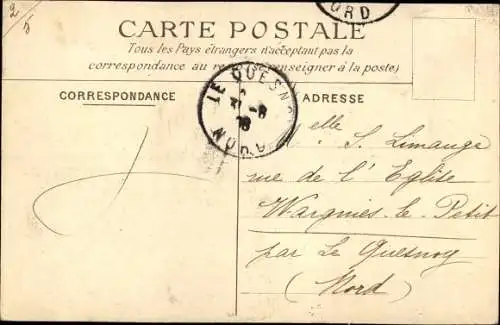 2
5
ORD
CARTE POSTALE
Tous les Pays étrangers n'acceptant pas la
correspondance au re renseigner à la poste)
CORRESPONDANCE
ADRESSE
LE QUESNO
NORD
elle S. Limange
rue de l'Eglise
Wargnies-le-Petit
par Le Quesnoy
(Nord)